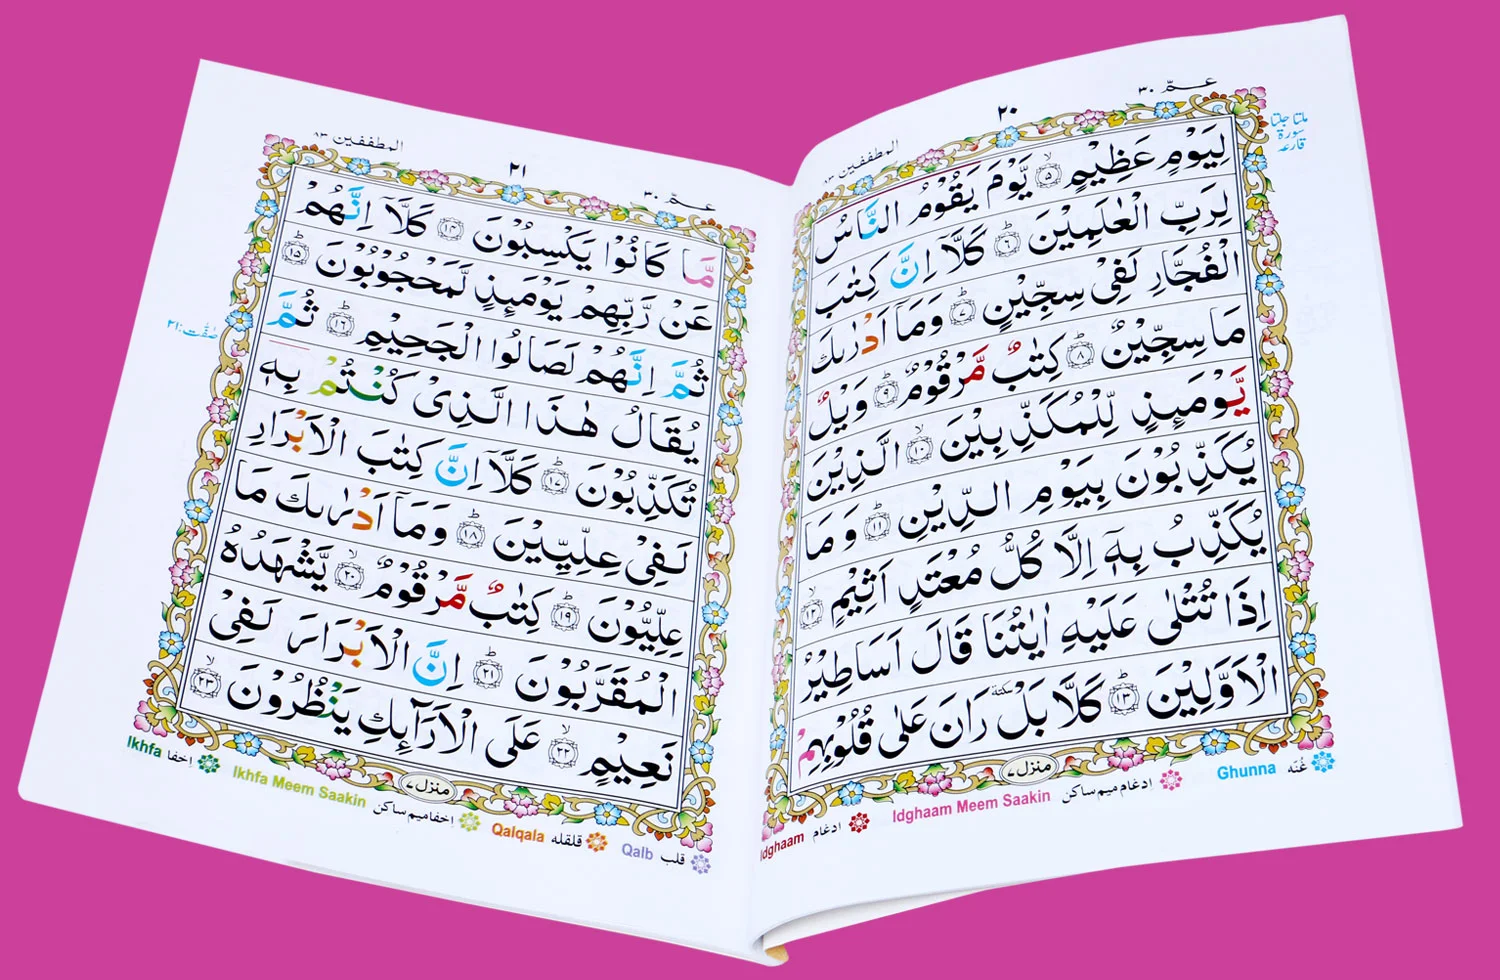 عـــمّ ٣٠
٢٠
المطففين ٨٣
لِيَوْمٍ عَظِيْمٍ ۙ﴿٥﴾ يَّوْمَ يَقُوْمُ النَّاسُ
لِرَبِّ الْعٰلَمِيْنَ ؕ﴿٦﴾ كَلَّاۤ اِنَّ كِتٰبَ
الْفُجَّارِ لَفِىْ سِجِّيْنٍ ؕ﴿٧﴾ وَمَاۤ اَدْرٰىكَ
مَا سِجِّيْنٌ ؕ﴿٨﴾ كِتٰبٌ مَّرْقُوْمٌ ؕ﴿٩﴾ وَيْلٌ
يَّوْمَىِٕذٍ لِّلْمُكَذِّبِيْنَ ۙ﴿١٠﴾ الَّذِيْنَ
يُكَذِّبُوْنَ بِيَوْمِ الدِّيْنِ ؕ﴿١١﴾ وَمَا
يُكَذِّبُ بِهٖۤ اِلَّا كُلُّ مُعْتَدٍ اَثِيْمٍ ۙ﴿١٢﴾
اِذَا تُتْلٰى عَلَيْهِ اٰيٰتُنَا قَالَ اَسَاطِيْرُ
الْاَوَّلِيْنَ ؕ﴿١٣﴾ كَلَّا بَلْ سكتة رَانَ عَلٰى قُلُوْبِهِمْ
منزل ٧
ملتا جلتا
سورة
قارعہ
غُنّه Ghunna
ادغام میم ساکن Idghaam Meem Saakin
ادغام Idghaam
عـــمّ ٣٠
٢١
المطففين ٨٣
مَّا كَانُوْا يَكْسِبُوْنَ ﴿١٤﴾ كَلَّاۤ اِنَّهُمْ
عَنْ رَّبِّهِمْ يَوْمَىِٕذٍ لَّمَحْجُوْبُوْنَ ؕ﴿١٥﴾
ثُمَّ اِنَّهُمْ لَصَالُوا الْجَحِيْمِ ؕ﴿١٦﴾ ثُمَّ
يُقَالُ هٰذَا الَّذِىْ كُنْتُمْ بِهٖ
تُكَذِّبُوْنَ ؕ﴿١٧﴾ كَلَّاۤ اِنَّ كِتٰبَ الْاَبْرَارِ
لَفِىْ عِلِّيِّيْنَ ؕ﴿١٨﴾ وَمَاۤ اَدْرٰىكَ مَا
عِلِّيُّوْنَ ؕ﴿١٩﴾ كِتٰبٌ مَّرْقُوْمٌ ۙ﴿٢٠﴾ يَّشْهَدُهُ
الْمُقَرَّبُوْنَ ؕ﴿٢١﴾ اِنَّ الْاَبْرَارَ لَفِىْ
نَعِيْمٍ ۙ﴿٢٢﴾ عَلَى الْاَرَآىِٕكِ يَنْظُرُوْنَ ۙ﴿٢٣﴾
منزل ٧
صٰفّٰت:٢١
قلب Qalb
قلقله Qalqala
اخفا میم ساکن Ikhfa Meem Saakin
اخفا Ikhfa